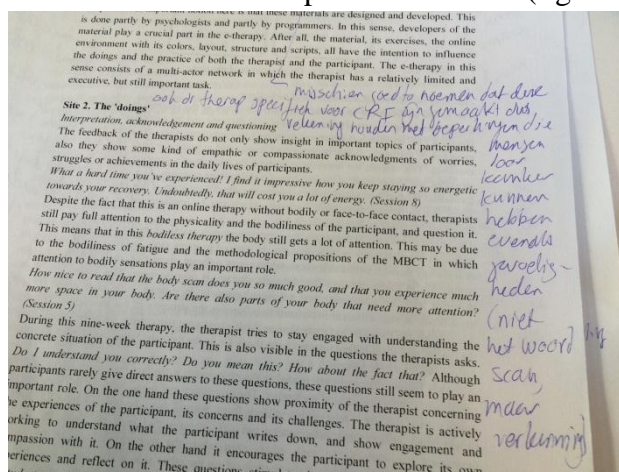 important notion here is that these materials are designed and developed. This
is done partly by psychologists and partly by programmers. In this sense, developers of the
material play a crucial part in the e-therapy. After all, the material, its exercises, the online
environment with its colors, layout, structure and scripts, all have the intention to influence
the doings and the practice of both the therapist and the participant. The e-therapy in this
sense consists of a multi-actor network in which the therapist has a relatively limited and
executive, but still important task.
misschien goed te noemen dat deze
ook dr therap specifiek voor CRF zijn gemaakt dus
Site 2. The 'doings'
rekening houden met beperkingen die
Interpretation, acknowledgement and questioning
The feedback of the therapists do not only show insight in important topics of participants,
mensen
also they show some kind of empathic or compassionate acknowledgments of worries,
door
struggles or achievements in the daily lives of participants.
kanker
What a hard time you've experienced! I find it impressive how you keep staying so energetic
kunnen
towards your recovery. Undoubtedly, that will cost you a lot of energy. (Session 8)
Despite the fact that this is an online therapy without bodily or face-to-face contact, therapists
hebben
still pay full attention to the physicality and the bodiliness of the participant, and question it.
evenals
This means that in this bodiless therapy the body still gets a lot of attention. This may be due
to the bodiliness of fatigue and the methodological propositions of the MBCT in which
gevoelig-
attention to bodily sensations play an important role.
heden
How nice to read that the body scan does you so much good, and that you experience much
more space in your body. Are there also parts of your body that need more attention?
(niet
(Session 5)
During this nine-week therapy, the therapist tries to stay engaged with understanding the
het woord
concrete situation of the participant. This is also visible in the questions the therapists asks.
Do I understand you correctly? Do you mean this? How about the fact that? Although
scan,
participants rarely give direct answers to these questions, these questions still seem to play an
maar
important role. On the one hand these questions show proximity of the therapist concerning
he experiences of the participant, its concerns and its challenges. The therapist is actively
verkenning)
orking to understand what the participant writes down, and show engagement and
mpassion with it. On the other hand it encourages the participant to explore its own
periences and reflect on it. These questions